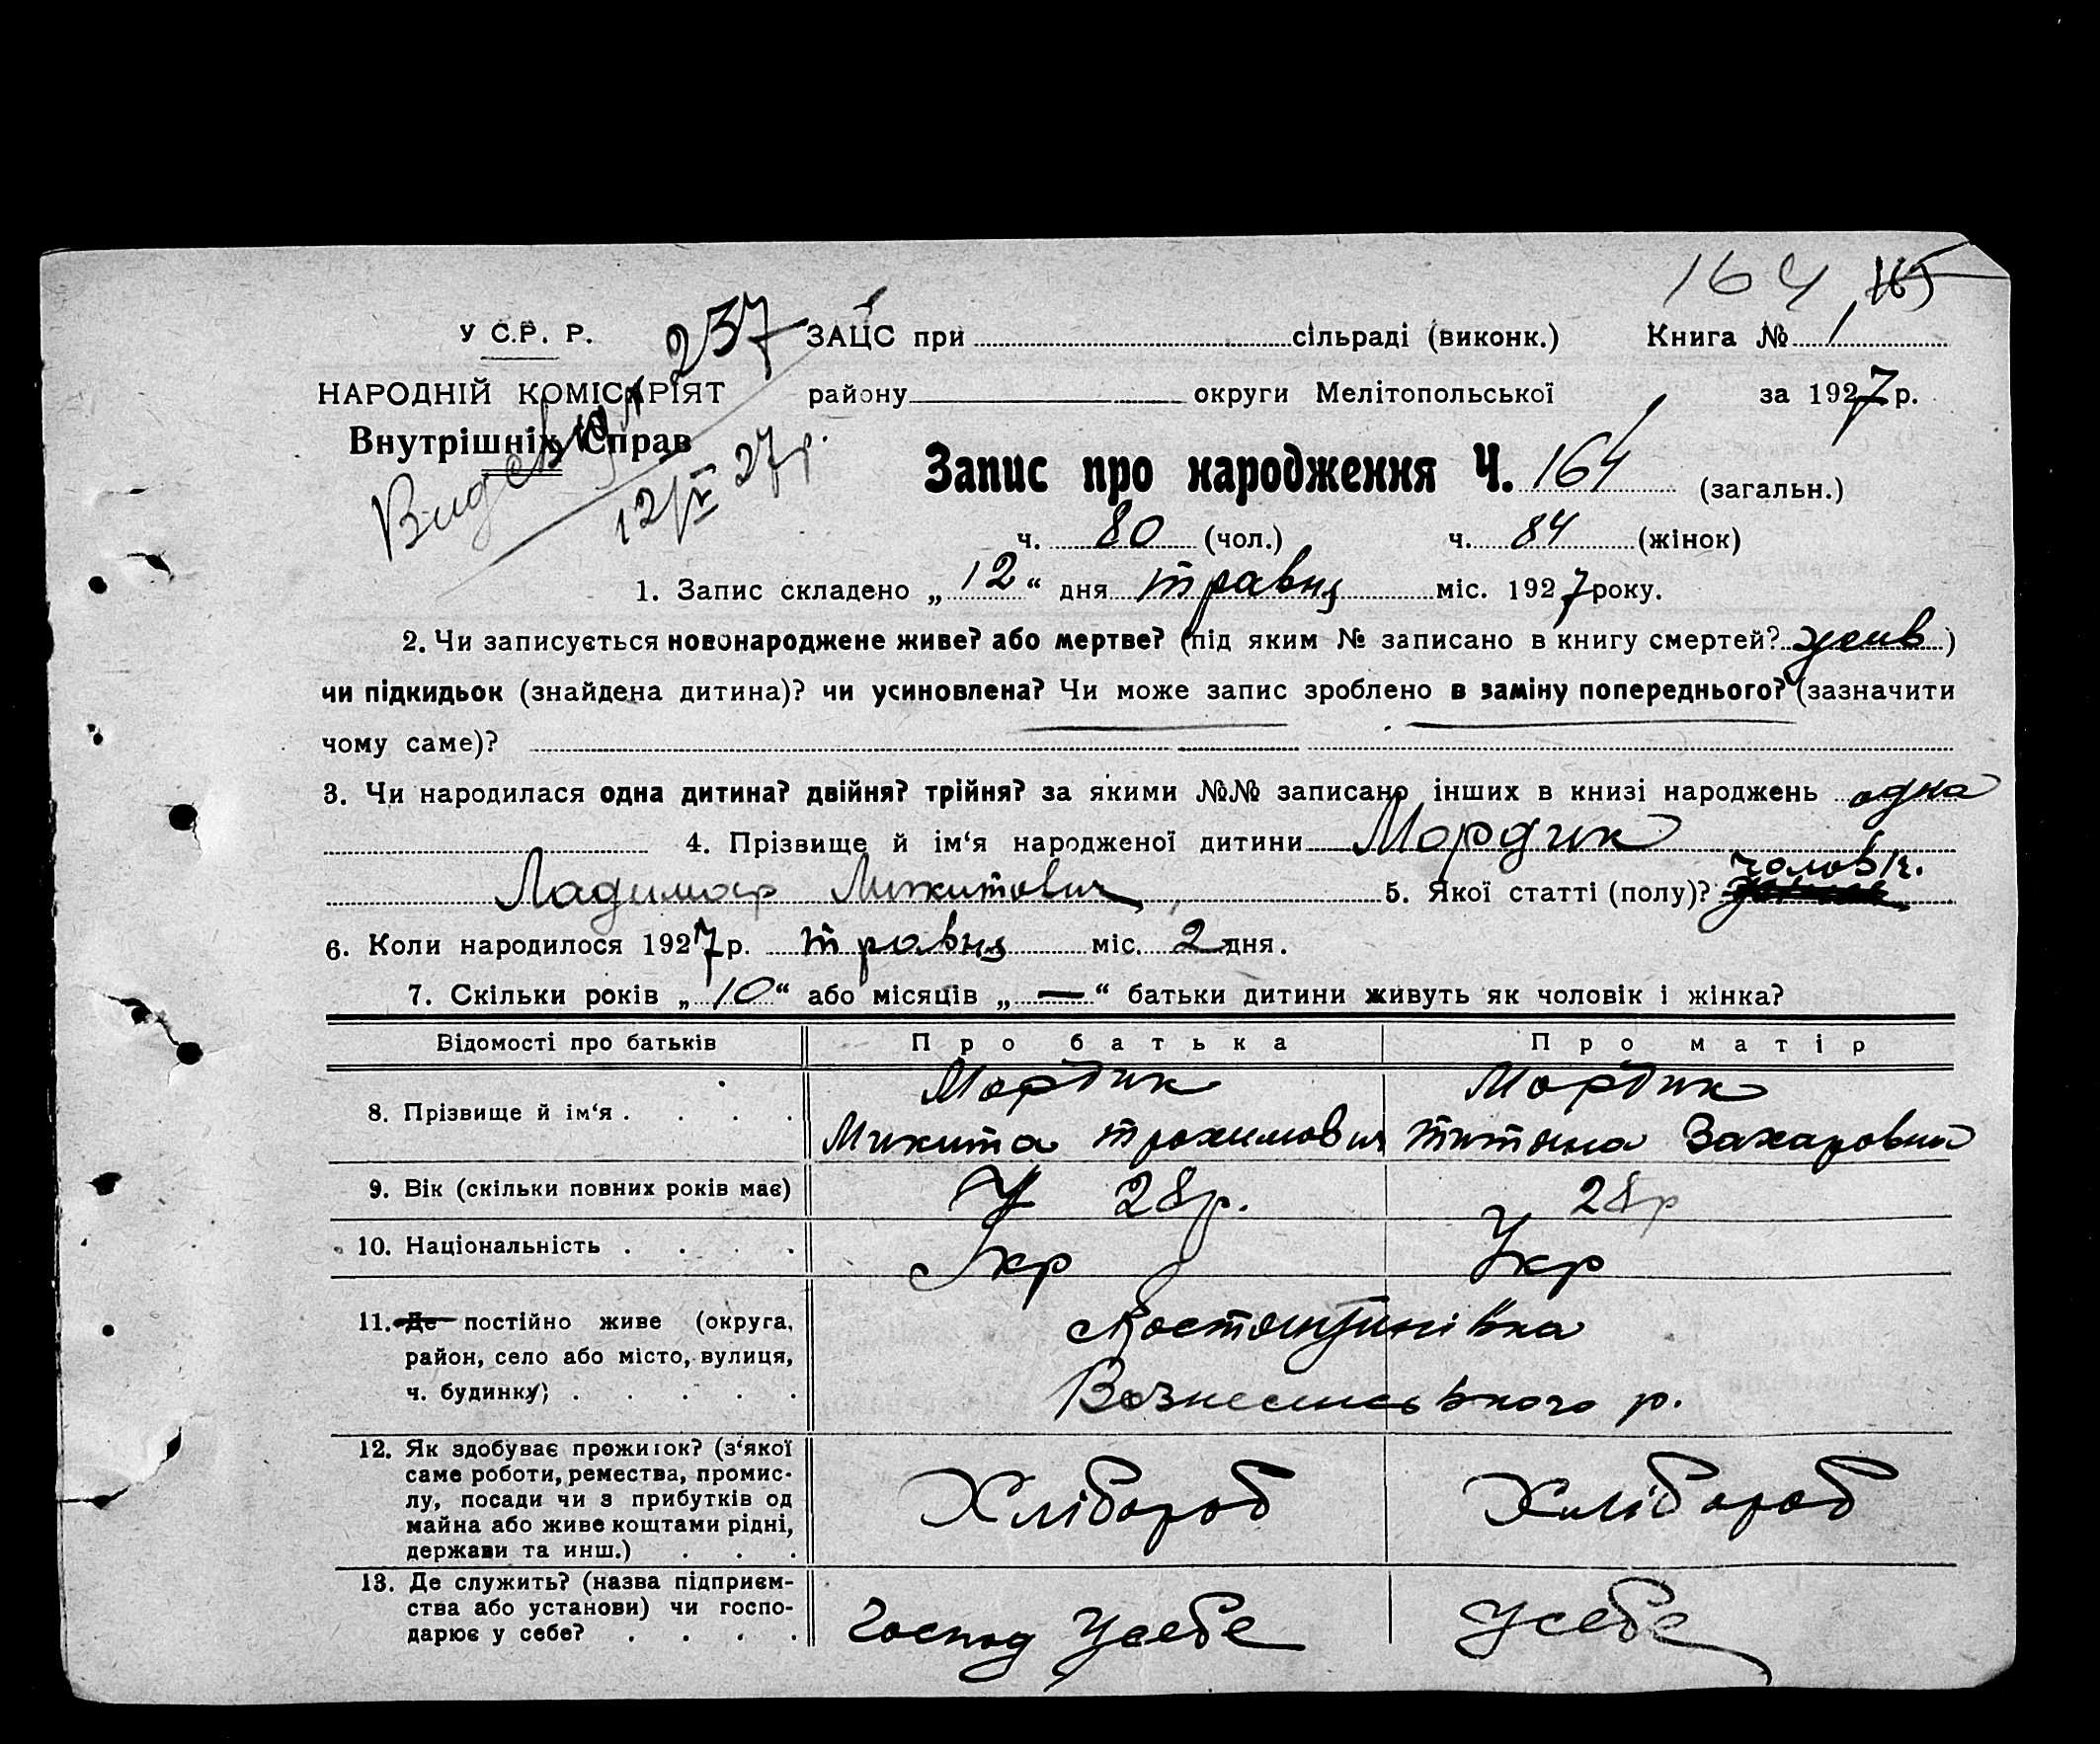 164 165
У С.Р. Р. 237 ЗАЦС при сільраді (виконк.) Книга № 1
НАРОДНІЙ КОМІСАРІЯТ району округи Мелітопольської за 1927 р.
Внутрішніх Справ
12/V 27 р.
Запис про народження Ч. 164 (загальн.)
ч. 80 (чол.) ч. 84 (жінок)
1. Запис складено „ 12 “ дня травня міс. 1927 року.
2. Чи записується новонароджене живе? або мертве? (під яким № записано в книгу смертей? жив )
чи підкидьок (знайдена дитина)? чи усиновлена? Чи може запис зроблено в заміну попереднього? (зазначити
чому саме)?
3. Чи народилася одна дитина? двійня? трійня? за якими №№ записано інших в книзі народжень одна
4. Прізвище й ім‘я народженої дитини Мордик
Ладимар Микитович 5. Якої статті (полу)? чоловіч.
6. Коли народилося 1927 р. травня міс. 2 дня.
7. Скільки років „ 10 “ або місяців „ — “ батьки дитини живуть як чоловік і жінка?
Відомості про батьків Про батька Про матір
8. Прізвище й ім‘я . . . . Мордик Мордик
Микита Трохимович Титяна Захаровна
9. Вік (скільки повних років має) 28 р. 28 р
10. Національність . . . . Укр Укр
11. Де постійно живе (округа, Костянтинівка
район, село або місто, вулиця,
ч. будинку) . . . . . Вознесенського р.
12. Як здобуває прожиток? (з‘якої
саме роботи, ремества, промис-
лу, посади чи з прибутків од Хлібороб Хлібороб
майна або живе коштами рідні,
держави та инш.) . . .
13. Де служить? (назва підприєм-
ства або установи) чи госпо- Господ Усебе Усебе
дарює у себе? . . . .